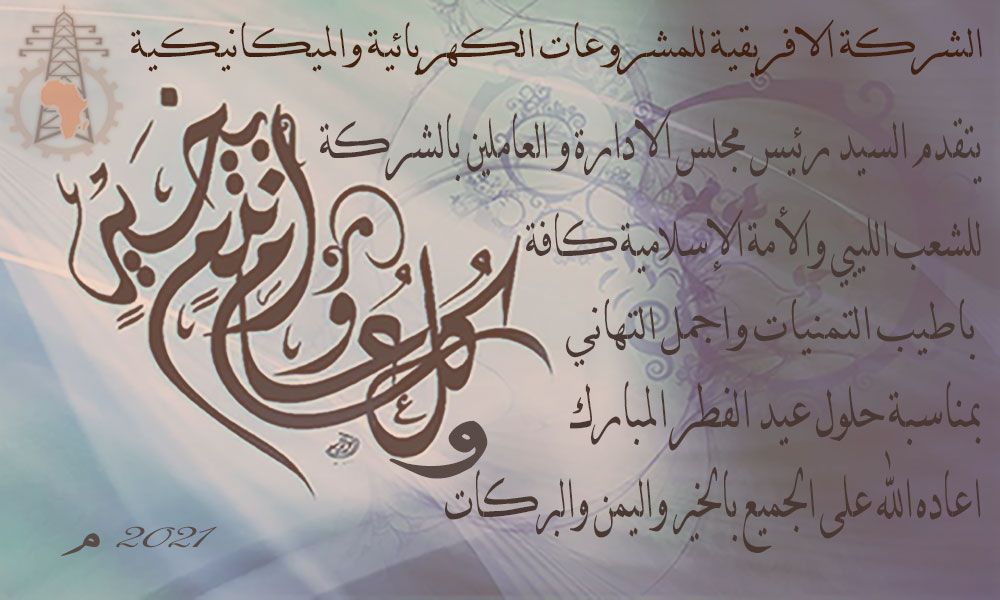 الشركة الافريقية للمشروعات الكهربائية والميكانيكية
يتقدم السيد رئيس مجلس الادارة و العاملين بالشركة
للشعب الليبي والأمة الإسلامية كافة
باطيب التمنيات واجمل التهاني
بمناسبة حلول عيد الفطر المبارك
اعاده الله على الجميع بالخير واليمن والبركات
و
كل عام وأنتم بخير
2021 م